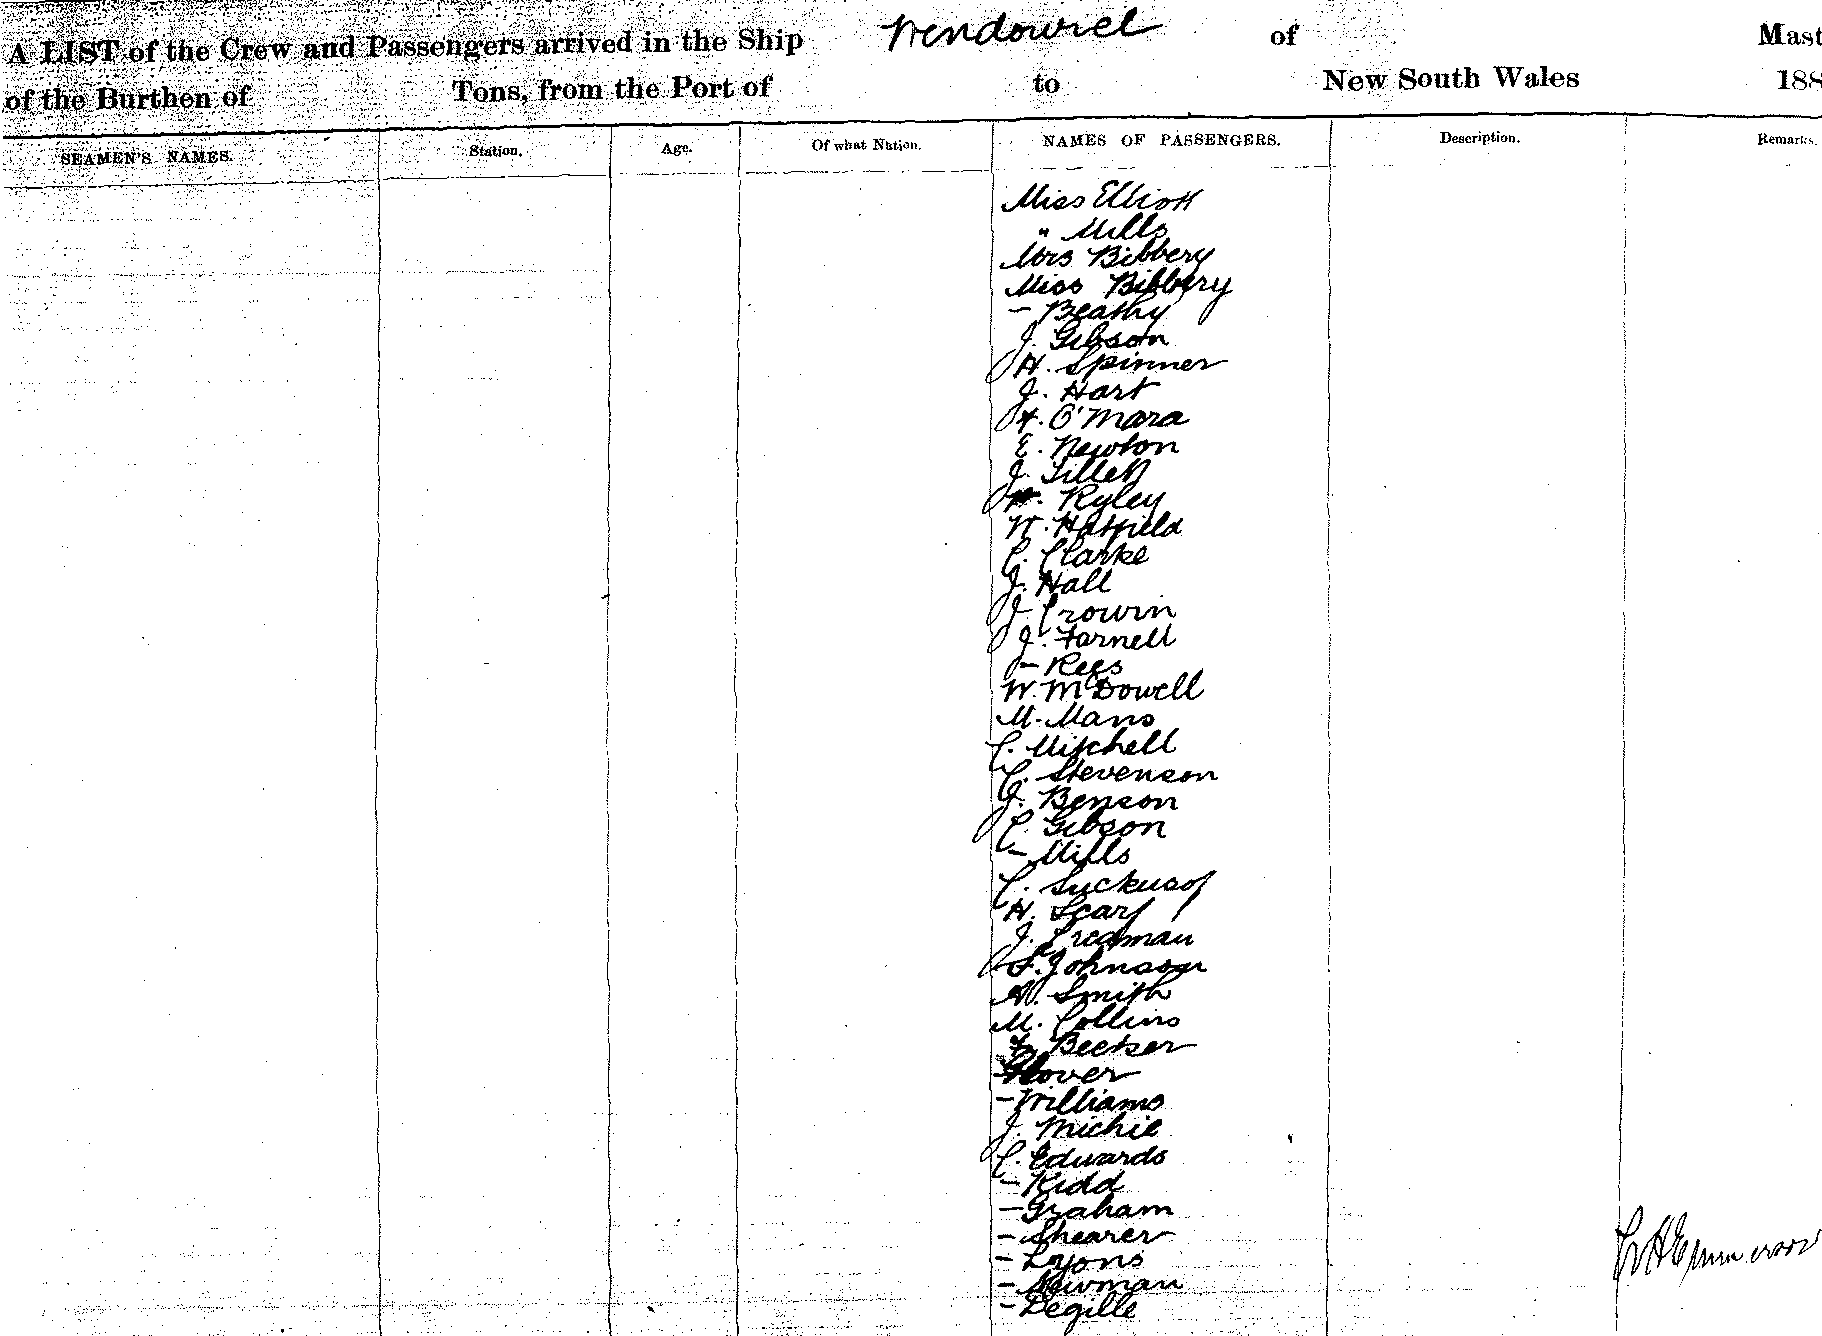 A LIST of the Crew and Passengers arrived in the Ship Wendouree of Mast
of the Burthen of Tons, from the Port of to New South Wales 188
SEAMEN'S NAMES. Station. Age. Of what Nation. NAMES OF PASSENGERS. Description. Remarks.
Miss Elliott
" Mills
Mrs Bibbery
Miss Bibbery
- Beathy
J. Gibson
H. Spinner
J. Hart
F. O'Mara
E. Newton
J. Tillett
Ryley
W. Hatfield
C. Clarke
J. Hall
J. Crowin
J. Farnell
- Rees
W. McDowell
M. Mans
C. Mitchell
C. Stevenson
J. Benson
C. Gibson
- Mills
C.
H. Scarf
J. Freeman
S. Johnson
A. Smith
M. Collins
Becker
Glover
- Williams
J. Michie
C. Edwards
- Kidd
- Graham
- Shearer
- Lyons
- Newman
- Legille
H Emmerson